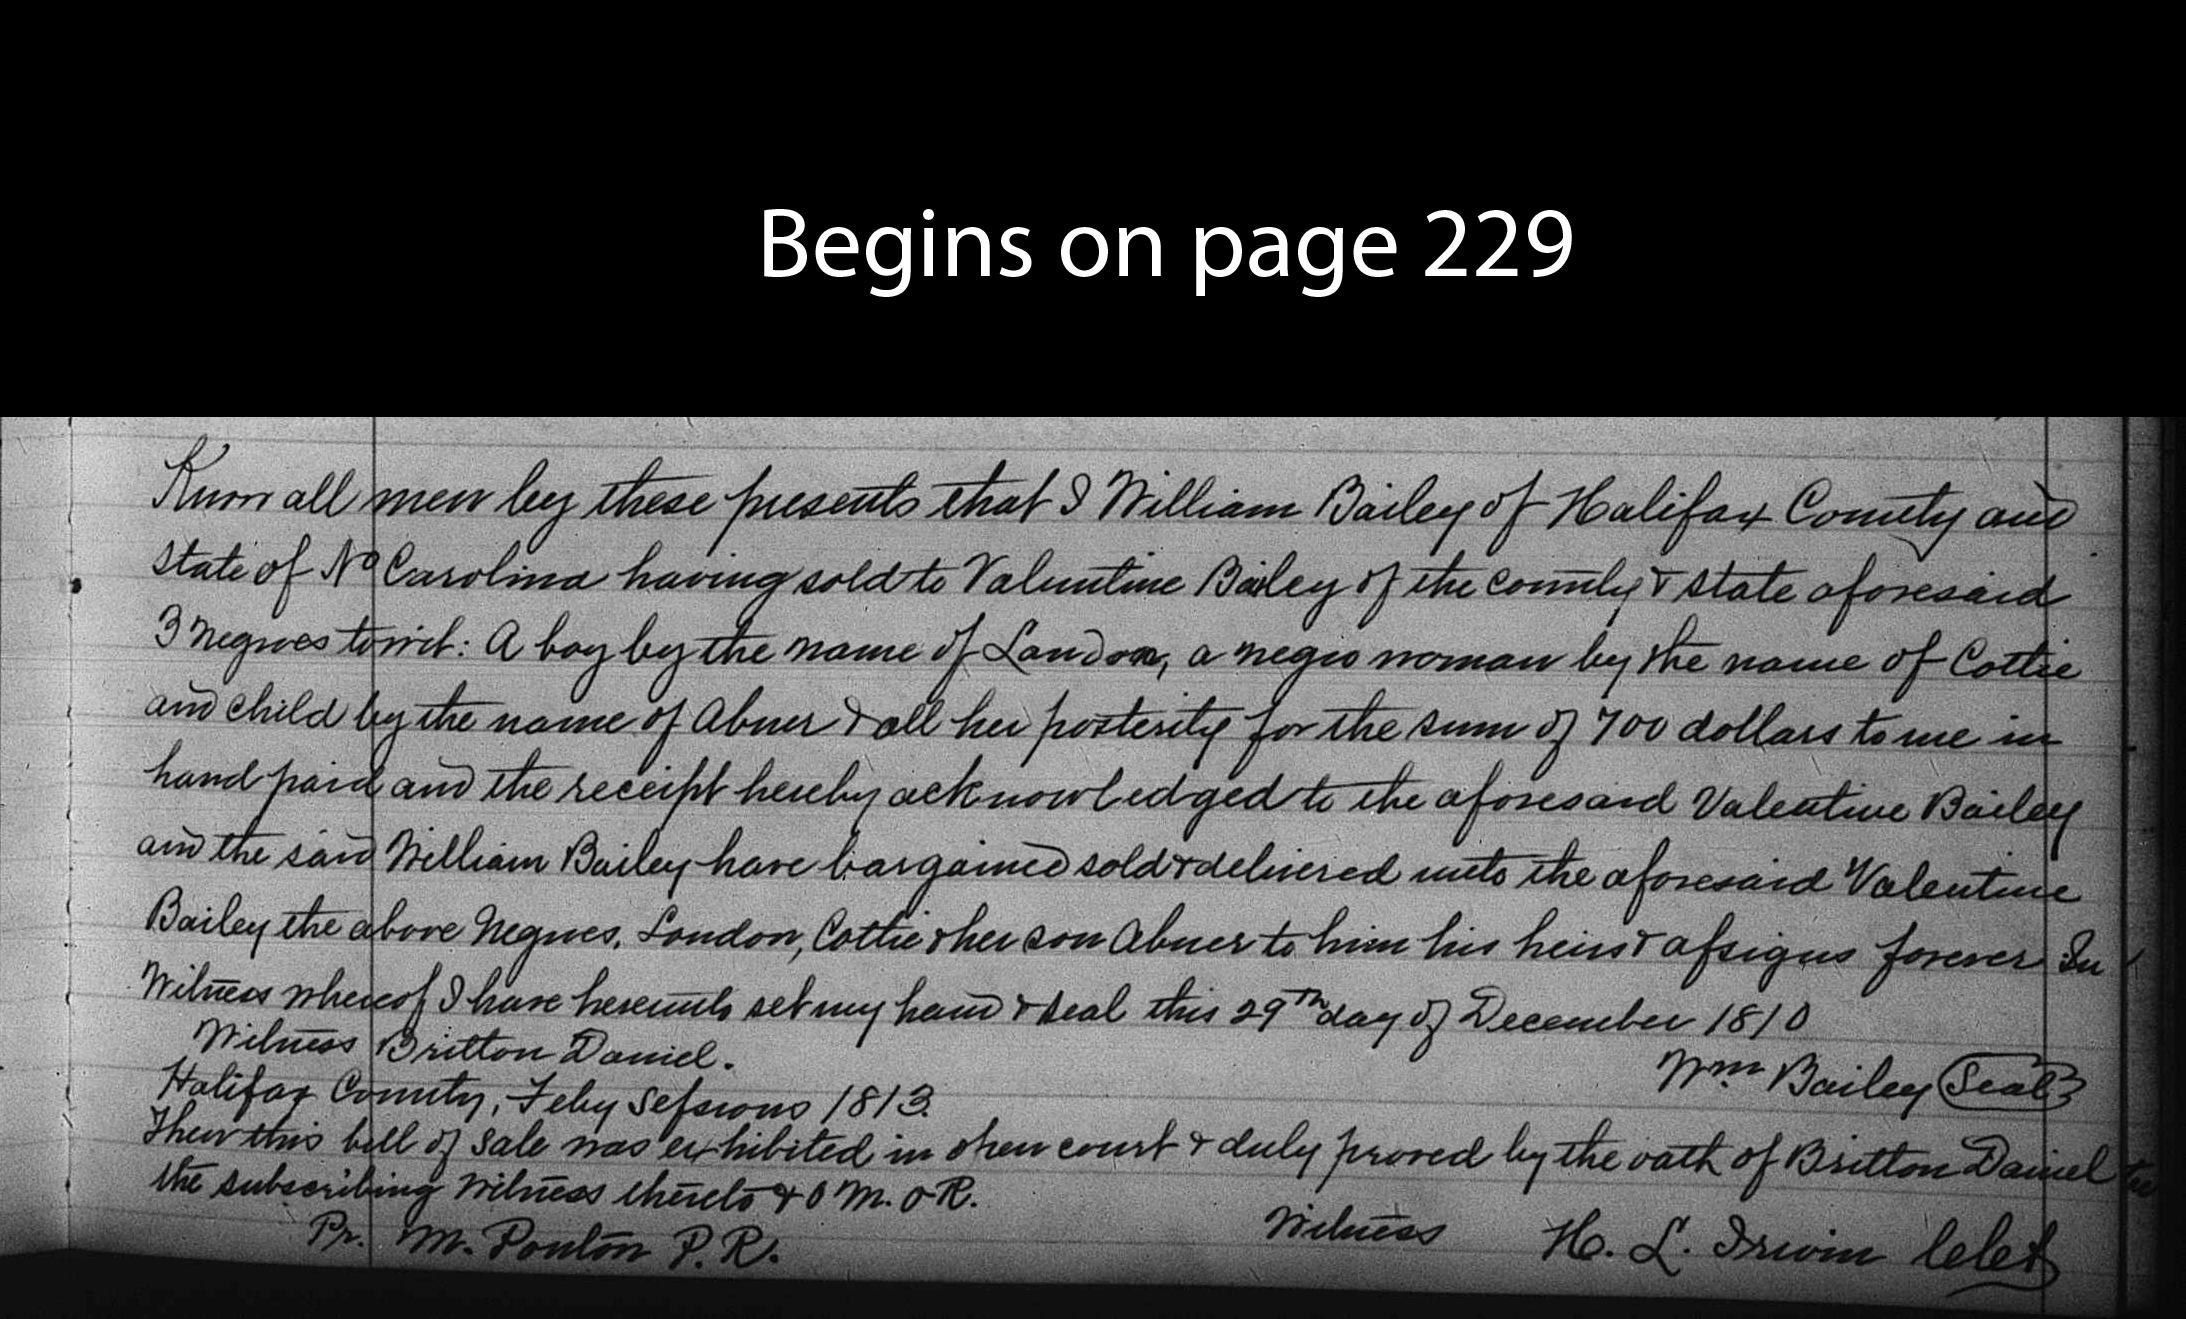 Begins on page 229
Know all men by these presents that I William Bailey of Halifax County and
State of No Carolina having sold to Valentine Bailey of the county & state aforesaid
3 negroes towit: A boy by the name of London, a negro woman by the name of Cottie
and child by the name of Abner & all her posterity for the sum of 700 dollars to me in
hand paid and the receipt hereby acknowledged to the aforesaid Valentine Bailey
and the said William Bailey have bargained sold & delivered unto the aforesaid Valentine
Bailey the above Negroes, London, Cottie & her son Abner to him his heirs & assigns forever In
Witness whereof I have hereunto set my hand & seal this 29th day of December 1810
Witness Britton Daniel.
Wm Bailey Seal
Halifax County, Feby Sessions 1813.
Then this bill of sale was exhibited in open court & duly proved by the oath of Britton Daniel
the subscribing Witness thereto & O M. O R.
Witness H. L. Irwin
Pr. M. Ponton P.R.